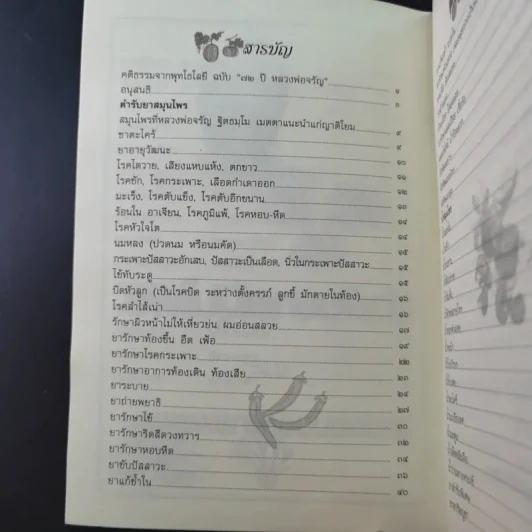 สารบัญ
คติธรรมจากพุทโธโลยี ฉบับ "๗๒ ปี หลวงพ่อจรัญ" ๑
อนุสนธิ ๓
ตำรับยาสมุนไพร
สมุนไพรที่หลวงพ่อจรัญ ฐิตธมฺโม เมตตาแนะนำแก่ญาติโยม ๙
ชาตะไคร้ ๙
ยาอายุวัฒนะ ๑๐
โรคไตวาย, เสียงแหบแห้ง, ตกขาว ๑๑
โรคชัก, โรคกระเพาะ, เลือดกำเดาออก ๑๒
มะเร็ง, โรคตับแข็ง, โรคตับอีกขนาน ๑๓
ร้อนใน อาเจียน, โรคภูมิแพ้, โรคหอบ-หืด ๑๔
โรคหัวใจโต ๑๔
นมหลง (ปวดนม หรือนมคัด) ๑๕
กระเพาะปัสสาวะอักเสบ, ปัสสาวะเป็นเลือด, นิ่วในกระเพาะปัสสาวะ ๑๕
ไข้ทับระดู ๑๕
บิดหัวลูก (เป็นโรคบิด ระหว่างตั้งครรภ์ ลูกขี้ มักตายในท้อง) ๑๖
โรคลำไส้เน่า ๑๖
รักษาผิวหน้าไม่ให้เหี่ยวย่น ผมอ่อนสลวย ๑๗
ยารักษาท้องขึ้น อืด เฟ้อ ๑๙
ยารักษาโรคกระเพาะ ๒๒
ยารักษาอาการท้องเดิน ท้องเสีย ๒๓
ยาระบาย ๒๔
ยาถ่ายพยาธิ ๒๗
ยารักษาไข้ ๓๐
ยารักษาริดสีดวงทวาร ๓๒
ยารักษาหอบหืด ๓๔
ยาขับปัสสาวะ ๓๖
ยาแก้ช้ำใน ๔๐